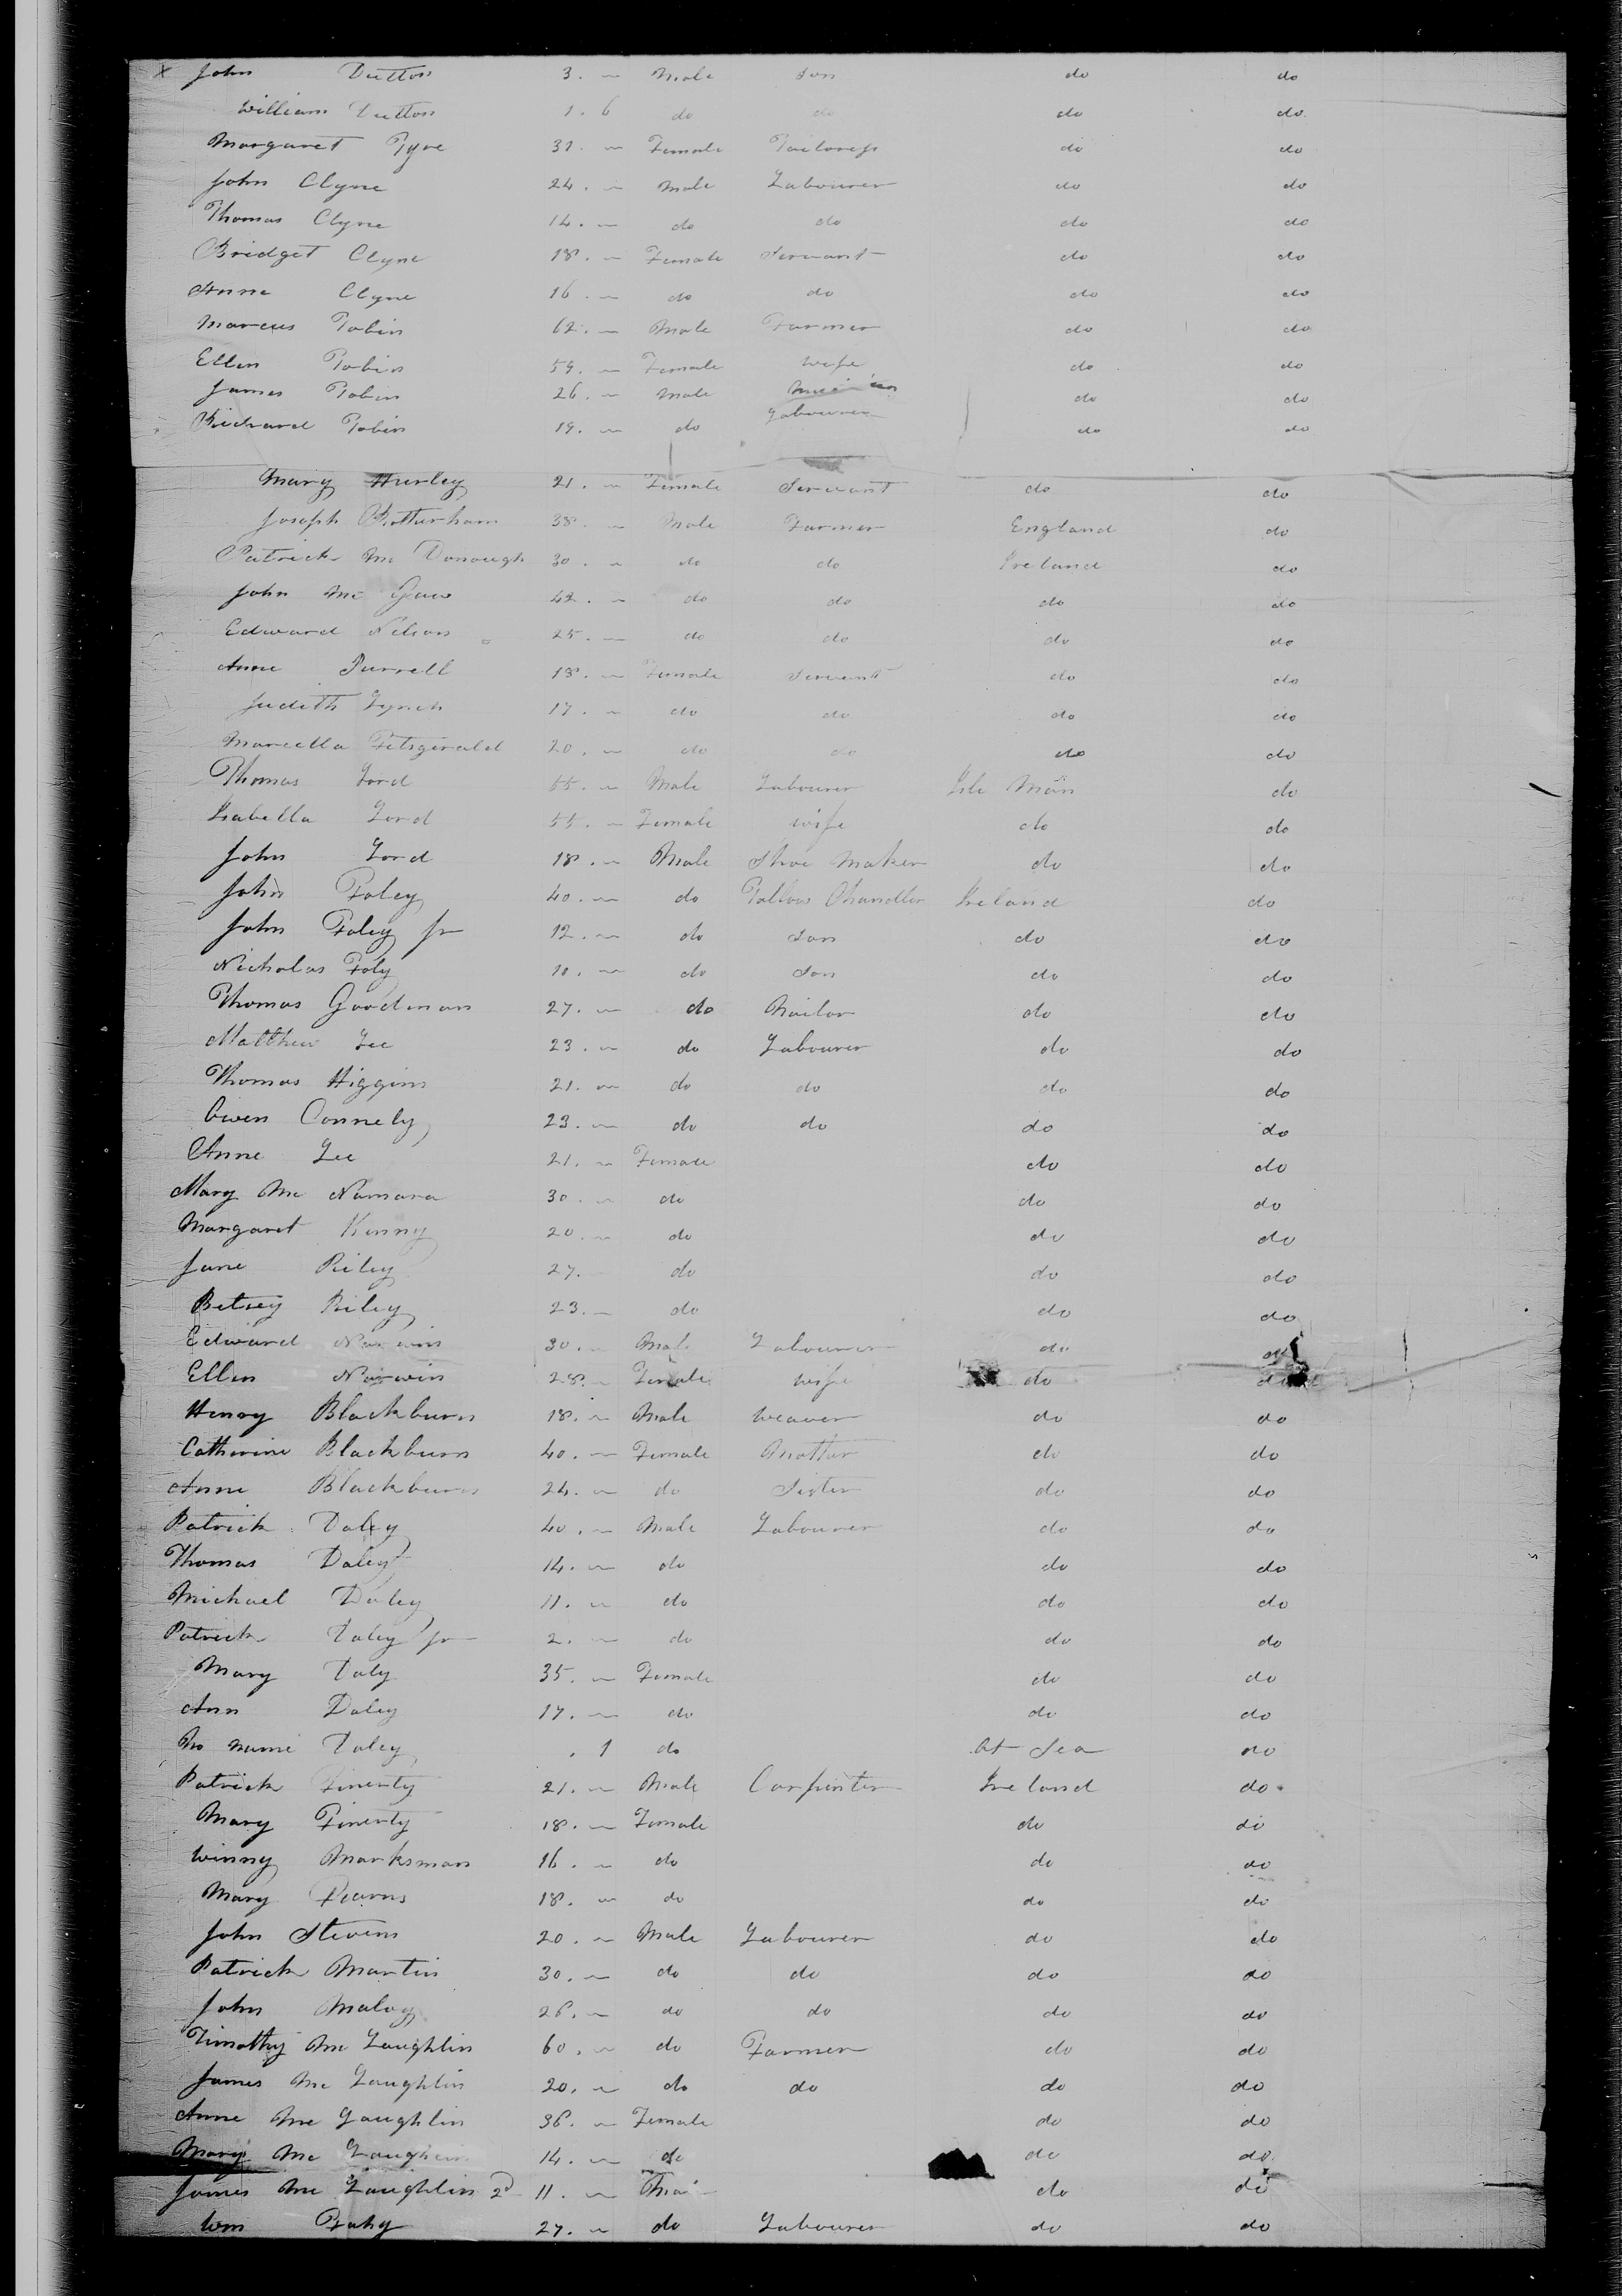 x John Dutton 3. ~ Male Son do do
William Dutton 1. 6 do do do do
Margaret Tyre 31. ~ Female Tailoress do do
John Clyne 24. ~ Male Labourer do do
Thomas Clyne 14. ~ do do do do
Bridget Clyne 18. ~ Female Servant do do
Anne Clyne 16. ~ do do do do
Marcus Tobin 62. ~ Male Farmer do do
Ellen Tobin 59. ~ Female wife do do
James Tobin 26. ~ Male do do
Richard Tobin 19. ~ do Labourer do do
Mary Hurley 21. ~ Female Servant do do
Joseph Rotherham 38. ~ Male Farmer England do
Patrick Mc Donough 30. ~ do do Ireland do
John Mc Gaw 42. ~ do do do do
Edward Nelson 25. ~ do do do do
Anne Purrell 18. ~ Female Servant do do
Judith Lynch 17. ~ do do do do
Marcella Fitsgirald 20. ~ do do do do
Thomas Lord 55. ~ Male Labourer Isle Man do
Isabella Lord 55. ~ Female wife do do
John Lord 18. ~ Male Shoe Maker do do
John Foley 40. ~ do Tallow Chandler Ireland do
John Foley Jr 12. ~ do Son do do
Nicholas Foly 10. ~ do Son do do
Thomas Goodman 27. ~ do Nailor do do
Matthew Lee 23. ~ do Labourer do do
Thomas Higgins 21. ~ do do do do
Owen Connely 23. ~ do do do do
Anne Lee 21. ~ Female do do
Mary Mc Namara 30. ~ do do do
Margaret Kenny 20. ~ do do do
Jane Riley 27. do do do
Betsey Riley 23. ~ do do do
Edward 30. ~ Male Labourer do do
Ellen 28. ~ Female wife do do
Henry Blackburn 18. ~ Male Weaver do do
Catherine Blackburn 40. ~ Female Mother do do
Anne Blackburn 24. ~ do Sister do do
Patrick Daley 40. ~ Male Labourer do do
Thomas Daley 14. ~ do do do
Michael Daley 11. ~ do do do
Patrick Daley Jr 2. ~ do do do
Mary Daly 35. ~ Female do do
Ann Daley 17. ~ do do do
No name Daley . 1 do At Sea do
Patrick Finerty 21. ~ Male Carpenter Ireland do
Mary Finerty 18. ~ Female do do
Winny Marksman 16. ~ do do do
Mary Kearns 18. ~ do do do
John Stevens 20. ~ Male Labourer do do
Patrick Martin 30. ~ do do do do
John Maloy 26. ~ do do do do
Timothy Mc Laughlin 60. ~ do Farmer do do
James Mc Laughlin 20. ~ do do do do
Anne Mc Laughlin 36. ~ Female do do
Mary Mc Laughlin 14. ~ do do do
James Mc Laughlin 2d 11. ~ Male do do
Wm Fahy 27. ~ do Labourer do do